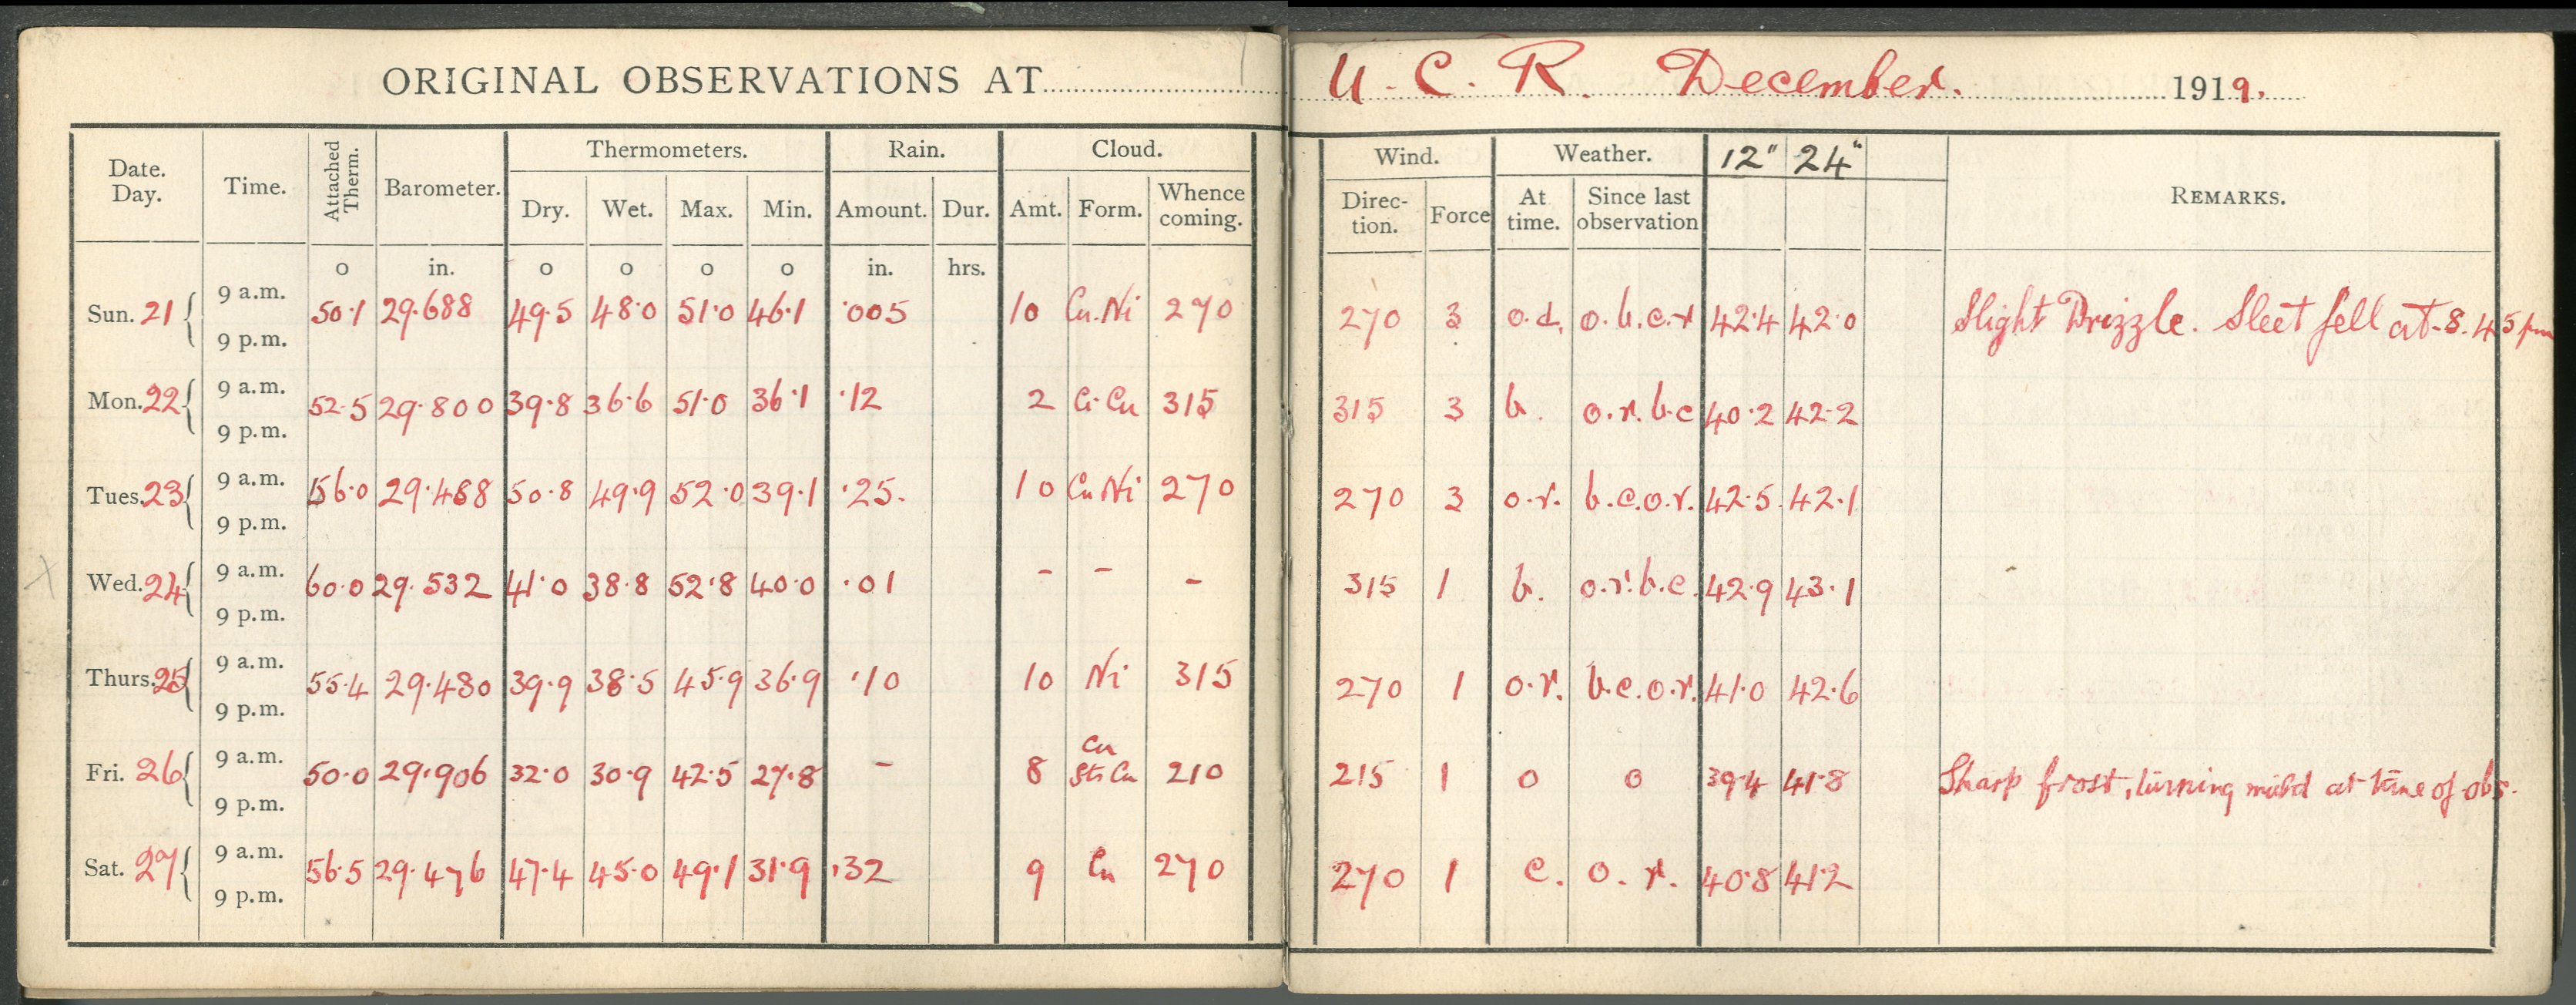 ORIGINAL OBSERVATIONS AT U. C. R. December. 1919.
Date. Day. Time. Attached Therm. Barometer. Thermometers. Rain. Cloud. Wind. Weather. 12" 24" REMARKS.
Dry. Wet. Max. Min. Amount. Dur. Amt. Form. Whence coming. Direc- tion. Force At time. Since last observation
o in. o o o o in. hrs.
Sun. 21 9 a.m. 50.1 29.688 49.5 48.0 51.0 46.1 .005 10 Cu.Ni 270 270 3 o.d. o.b.c.r 42.4 42.0 Slight Drizzle. Sleet fell at 8.45 pm
9 p.m.
Mon. 22 9 a.m. 52.5 29.800 39.8 36.6 51.0 36.1 .12 2 Ci-Cu 315 315 3 b. o.r.b.c 40.2 42.2
9 p.m.
Tues. 23 9 a.m. 56.0 29.488 50.8 49.9 52.0 39.1 .25. 10 Cu Ni 270 270 3 o.r. b.c.o.r. 42.5 42.1
9 p.m.
Wed. 24 9 a.m. 60.0 29.532 41.0 38.8 52.8 40.0 .01 - - - 315 1 b. o.r.b.c. 42.9 43.1
9 p.m.
Thurs. 25 9 a.m. 55.4 29.480 39.9 38.5 45.9 36.9 .10 10 Ni 315 270 1 o.r. b.c.o.r. 41.0 42.6
9 p.m.
Fri. 26 9 a.m. 50.0 29.906 32.0 30.9 42.5 27.8 - 8 Cu Str Cu 210 215 1 o o 39.4 41.8 Sharp frost, turning mild at time of obs.
9 p.m.
Sat. 27 9 a.m. 56.5 29.476 47.4 45.0 49.1 31.9 .32 9 Cu 270 270 1 c. o. r. 40.8 41.2
9 p.m.